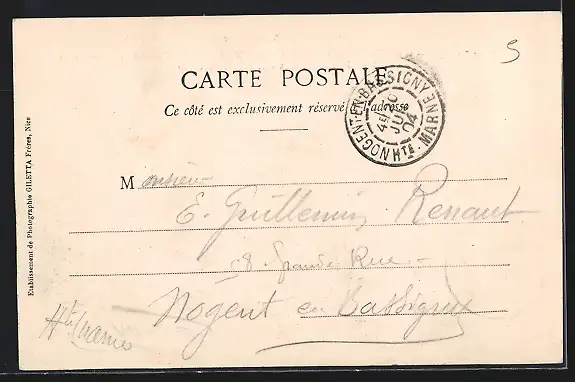 5
CARTE POSTALE
Ce côté est exclusivement réservé à l'adresse
NOGENT-EN-BASSIGNY HTE-MARNE
4E
JU
04
Monsieur
E. Guillemin Renaut
8 Grande Rue
Nogent en Bassigny
Hte Marne
Etablissement de Photographie GILETTA Frères, Nice